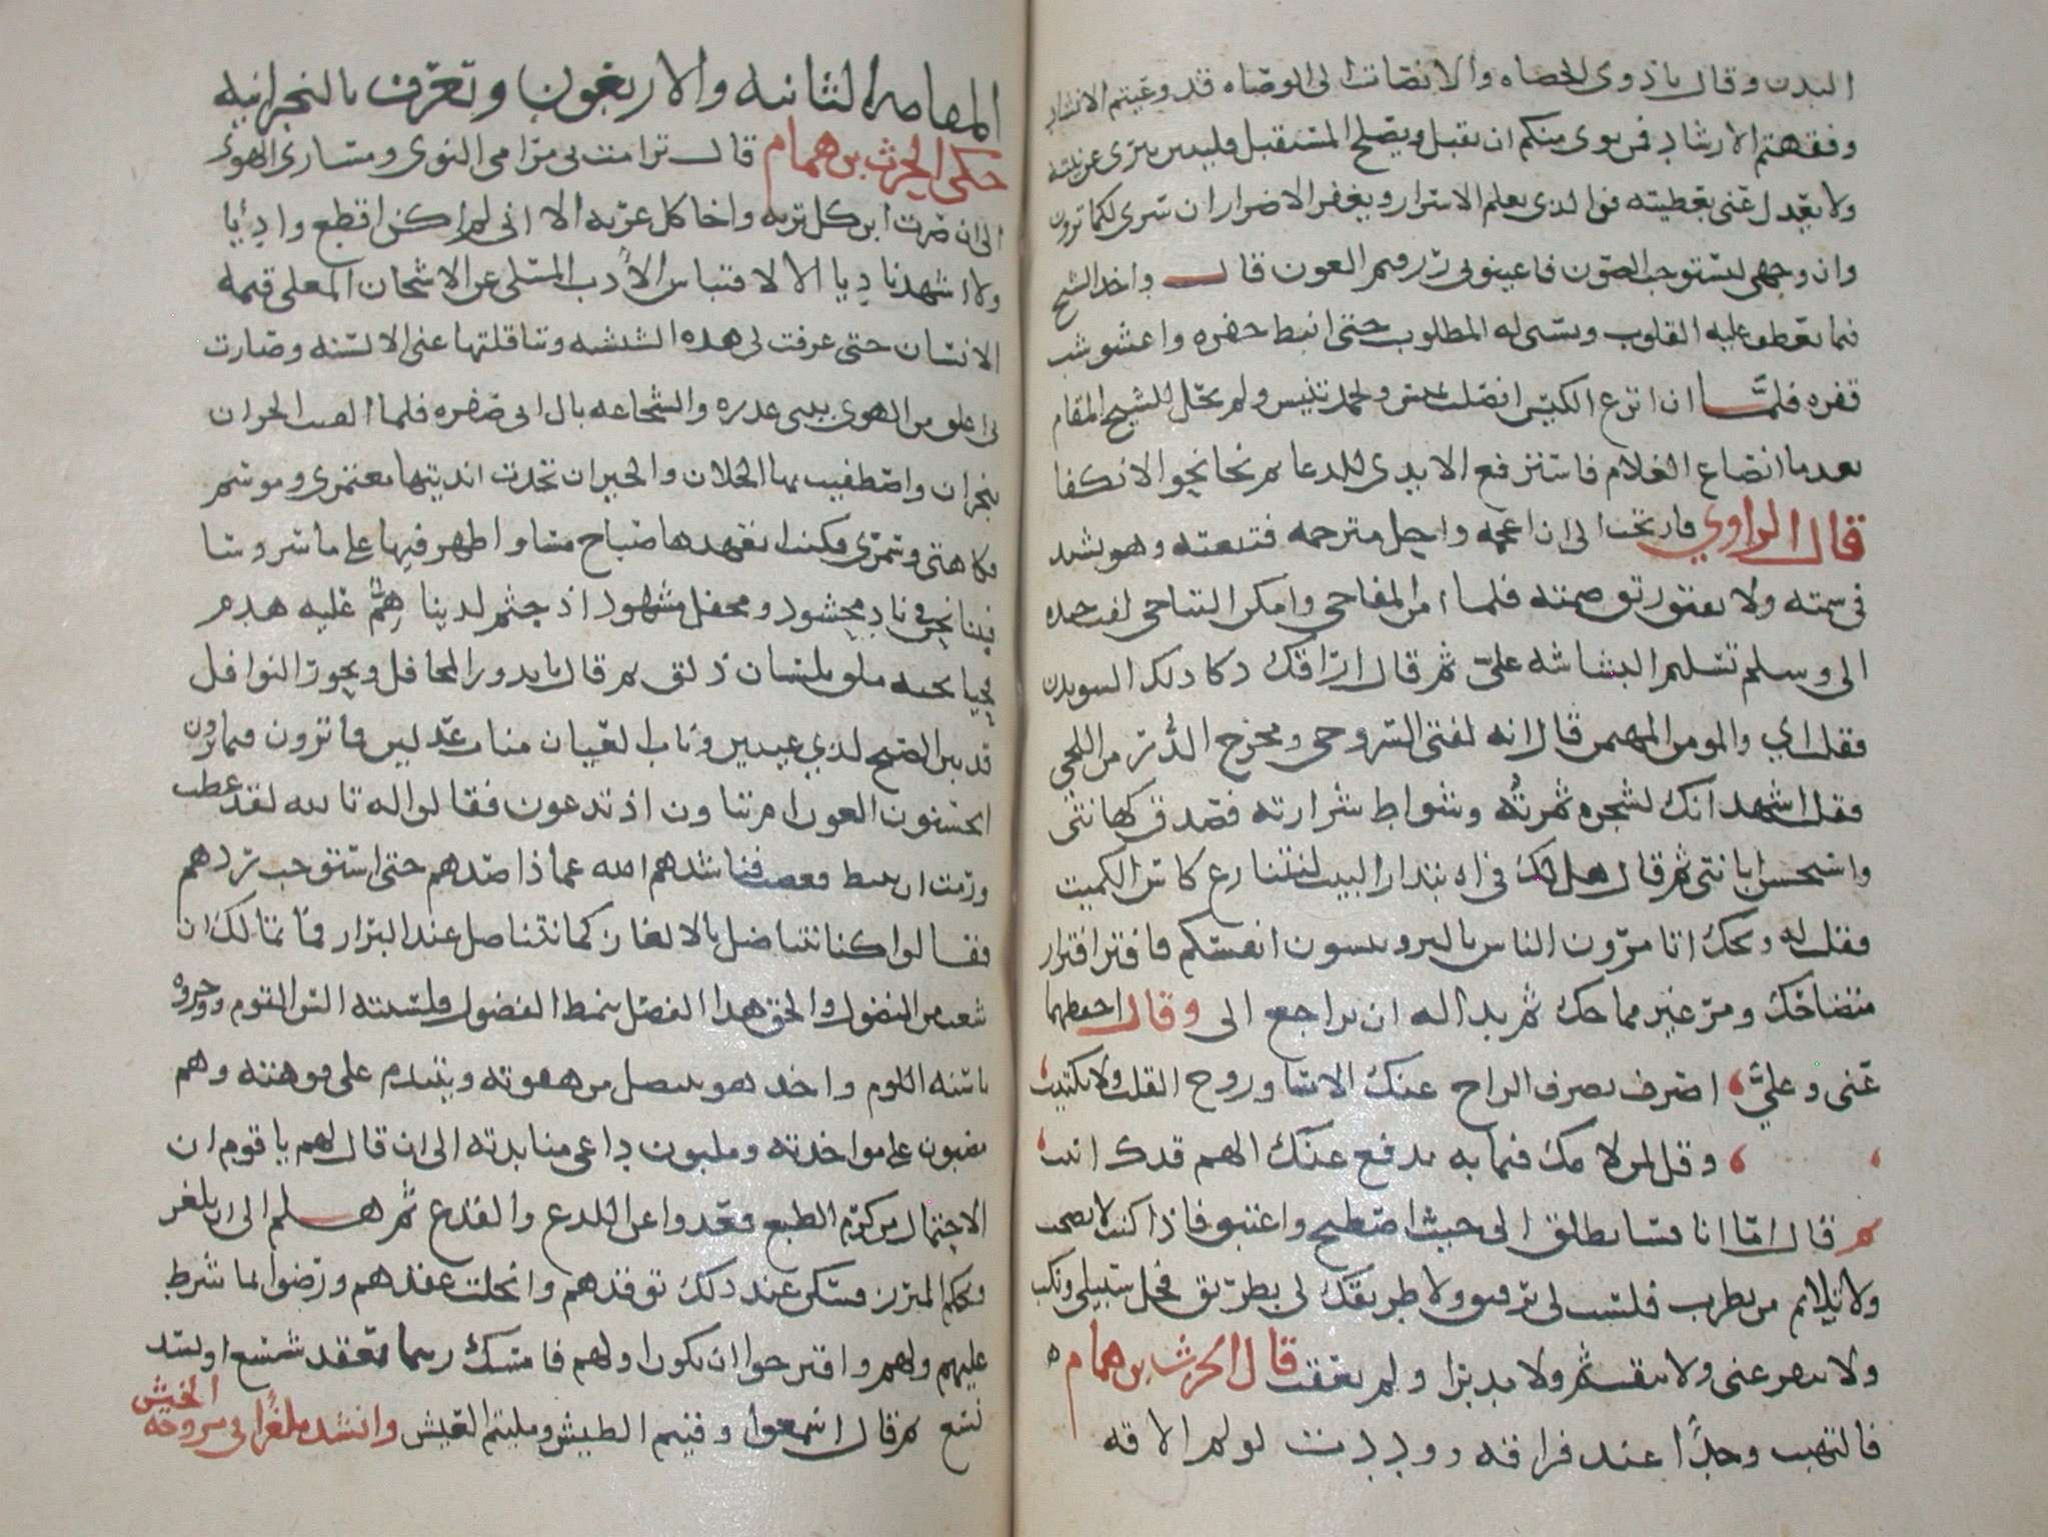 البدن وقال يا ذوي الحصاه والانصات الى الوصاه قد وعيتم الانشاد
وفقهتم الارشاد فمن نوى منكم ان يقبل ويصلح المستقبل فليبن ببرى عن نيته
ولا يعدل عنى بعطيته فوالذى يعلم الاسرار ويغفر الاضرار ان سرى لكما ترون
وان وجهى ليستوجب الصون فاعينونى رزقتم العون قال واخذ الشيخ
فيما يعطف عليه القلوب ويسنى له المطلوب حتى انبط حفره واعشوشب
قفره فلما ان اترع الكيس انصلت يميس ويحمد تنيس ولم يحل للشيخ المقام
بعدما انصاع الغلام فاستنزفع الايدى للدعا ثم نحا نحو الانكفا
قال الراوي فارتحت الى ان اعجمه واحل مترجمه فتبعته وهو يشتد
في سمته ولا يفتق رتق صمته فلما امن المفاجى وامكن التناجى لفت جيده
الى وسلم تسليم البشاشه علي ثم قال اراقك ذكا ذلك الشويدن
فقلت اي والمومن المهيمن قال انه لفتى السروجى ومخرج الدر من اللجى
فقلت اشهد انك لشجره ثمرته وشواظ شرارته فصدق كهانتى
واستحسن ابانتى ثم قال هل لك في ابتدار البيت لنتنازع كاس الكميت
فقلت له ويحك اتامرون الناس بالبر وتنسون انفسكم فافتر افترار
متضاحك ومر غير مماحك ثم بدا له ان تراجع الى وقال احفظهما
عنى وعلي اصرف بصرف الراح عنك الاسا وروح القلب ولا تكتيب
وقل لمن لامك فيما به تدفع عنك الهم قدك اتيب
ثم قال اما انا فسانطلق الى حيث اصطبح واغتبق فاذا كنت لا تصحب
ولا تلايم من يطرب فلست لى برفيق ولا طريقك لى بطريق فخل سبيلى ونكب
ولا تنقر عنى ولا تنقب ثم ولا مدبرا ولم يعقب قال الحرث بن همام
فالتهبت وجدا عند فراقه ووددت لو لم الاقه
المقامه الثانيه والاربعون وتعرف بالنجرانيه
حكى الحرث بن همام قال ترامت بى مرامى النوى ومسارى الهوى
الى ان صرت ابن كل تربه واخا كل غربه الا انى لم اكن اقطع واديا
ولا اشهد ناديا الا لاقتباس الأدب المسلى عن الاشجان المغلى قيمه
الانسان حتى عرفت لى هذه الشنشنه وتناقلتها عنى الالسنه وصارت
بى اعلق من الهوى ببنى عذره والشجاعه بال ابى صفره فلما القيت الجران
بنجران واصطفيت بها الخلان والجيران تخذت انديتها معتمرى وموسم
فكاهتى وسمرى فكنت اتعهدها صباح مسا واظهر فيها على ما سر وسا
فبينا نحن في ناد محشود ومحفل مشهود اذ جثم لدينا هم عليه هدم
فحيا تحيه ملق بلسان ذلق ثم قال يا بدور المحافل وبحور النوافل
قد بين الصبح لذي عينين وناب العيان مناب عدلين فما ترون فيما ترون
اتحسنون العون ام تناون اذ تدعون فقالوا له تالله لقد غظت
ورمت ان تنبط فغضت فناشدهم الله عما ذا صدهم حتى استوجب ردهم
فقالوا كنا نتناضل بالالغاز كما نتناصل عند البراز فما تمالك ان
شعث من النضول والحق هذا الفضل بنمط الفضول فلسنته السن القوم ووخزوه
باسنه اللوم واخذ هو يتنصل من هفوته ويتندم على فوهته وهم
مضبون على مواخذته وملبون داعى منابذته الى ان قال لهم يا قوم ان
الاحتمال من كرم الطبع فعدوا عن اللدع والقذع ثم هلم الى ان نلغز
ونحكم المبرز فسكن عند ذلك توقدهم وانحلت عقدهم ورضوا بما شرط
عليهم ولهم واقترحوا ان يكون اولهم فامسك ريثما يعقد شسع او يشد
نسع ثم قال اسمعوا وقيتم الطيش ومليتم العيش وانشد ملغزا فى مروحه الخيش